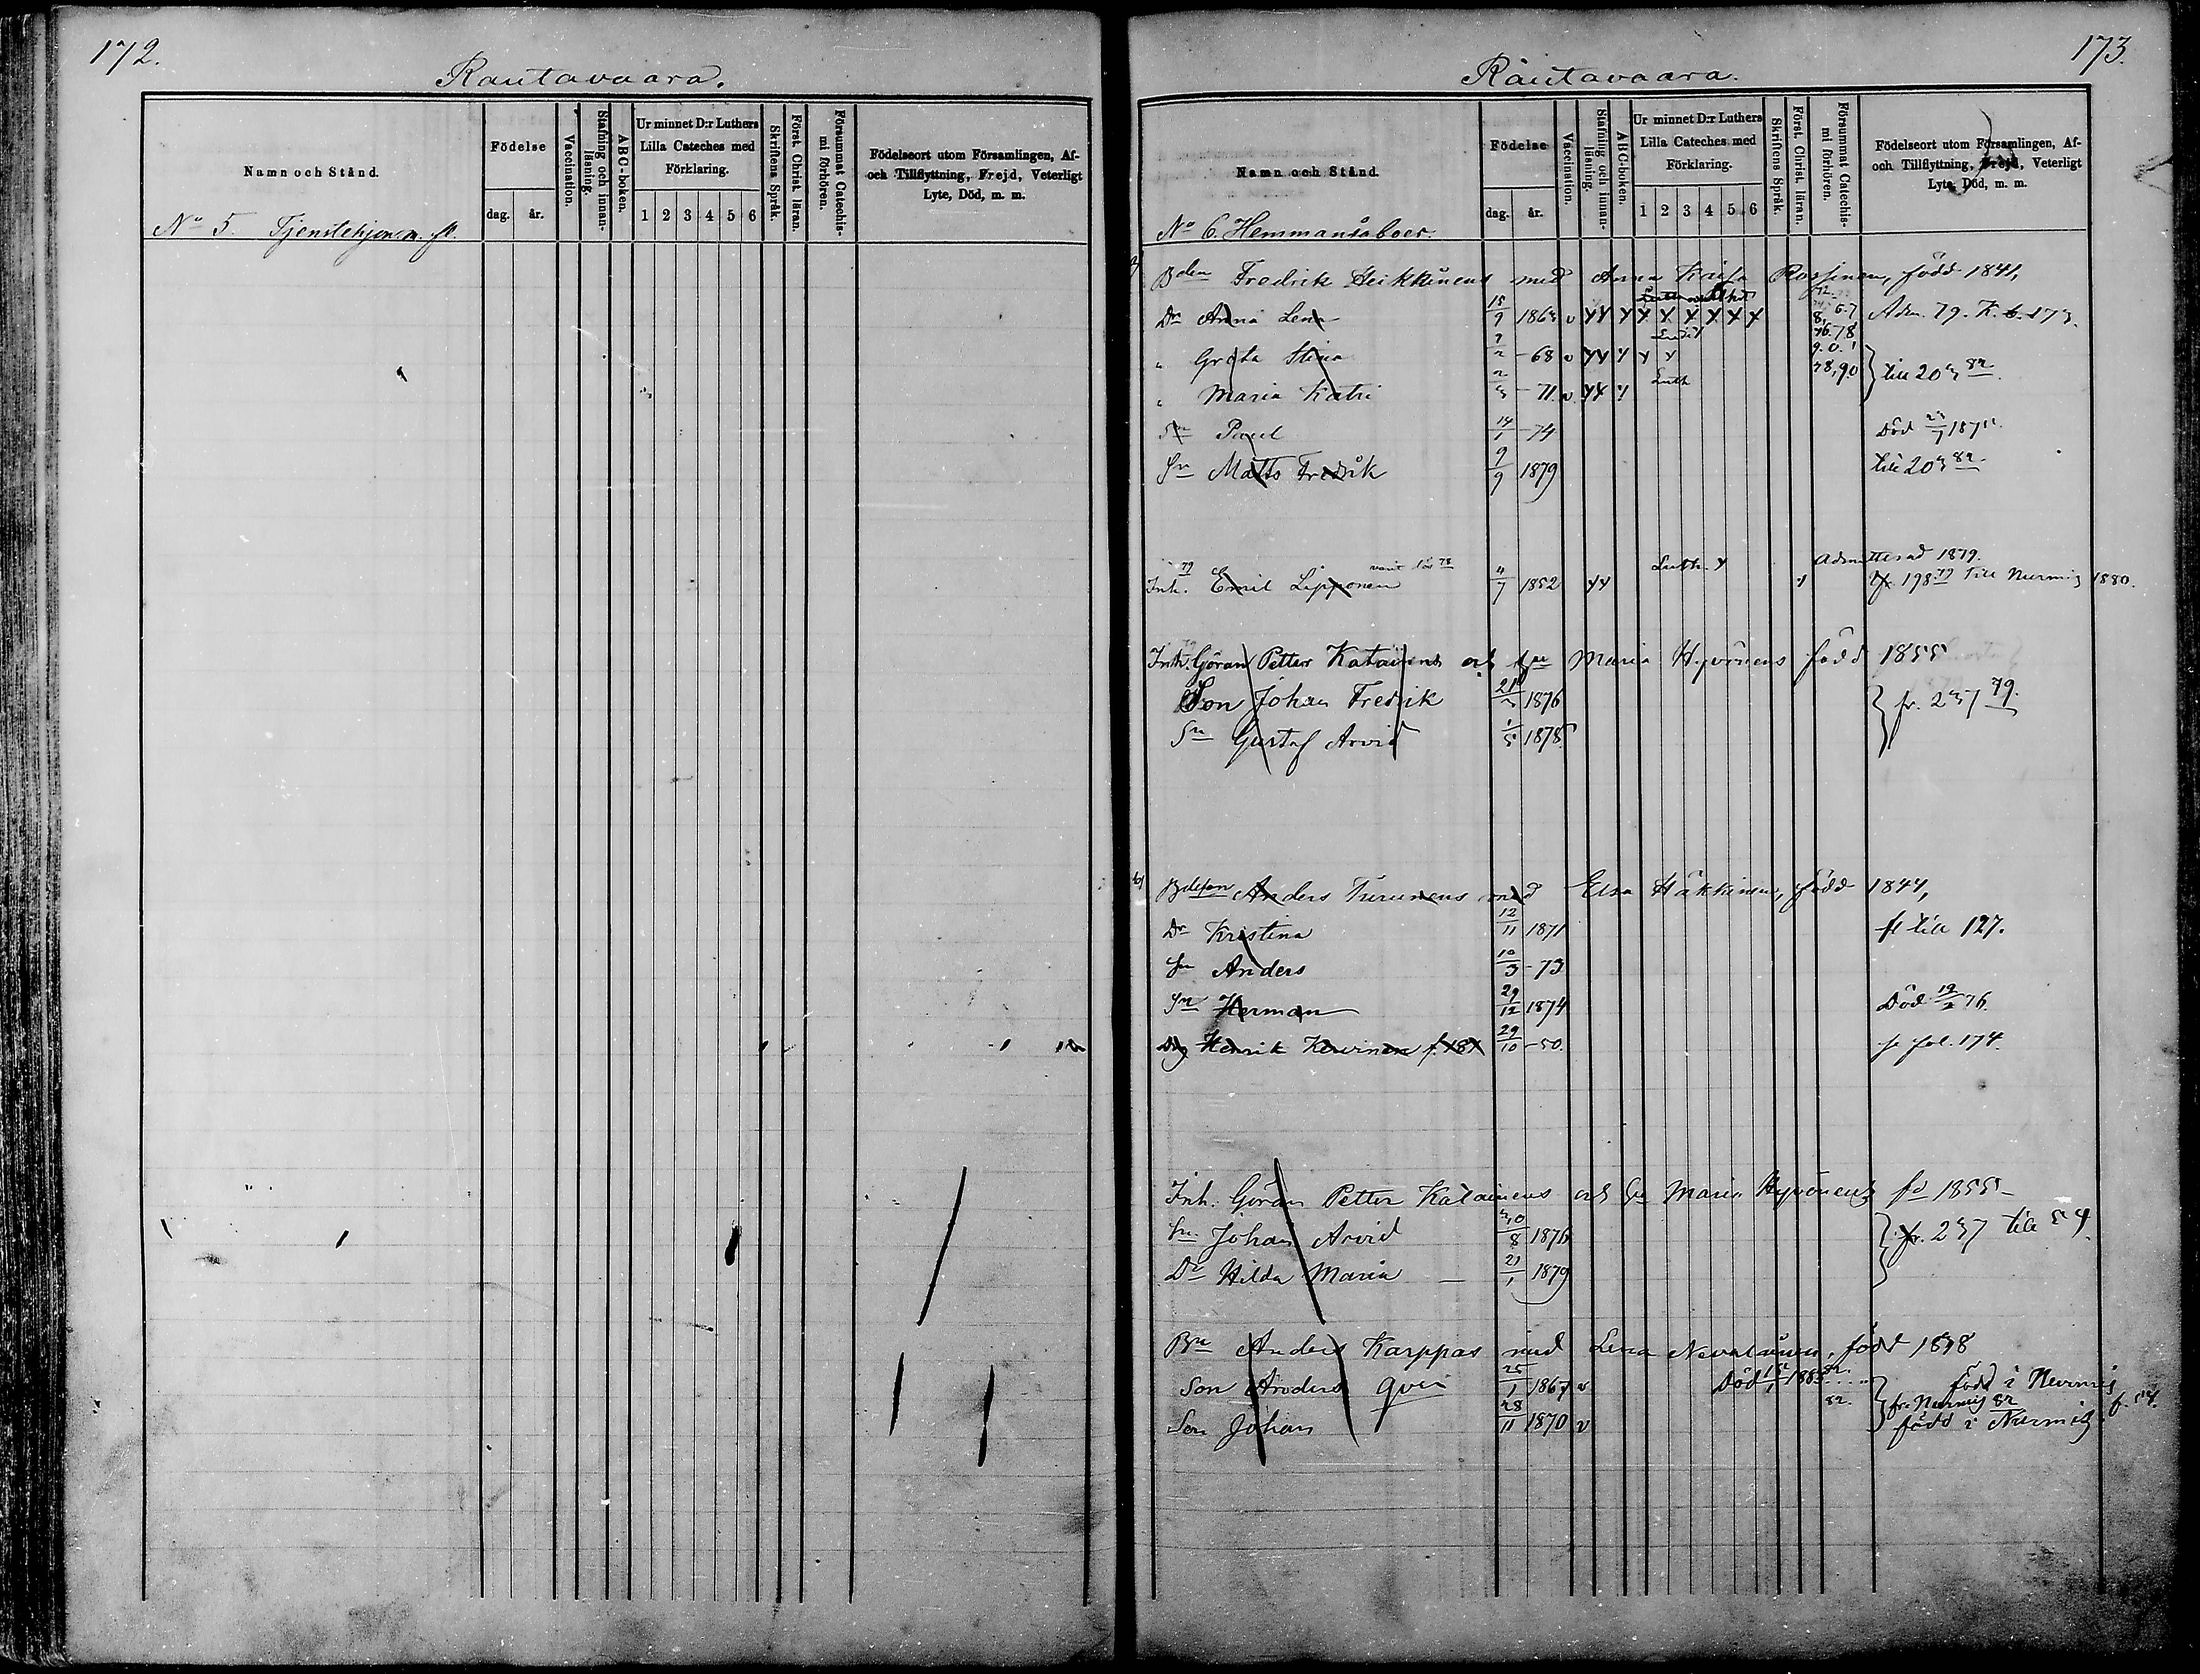 172.
Rautavaara.
Namn och Stånd.
Födelse
dag. år.
Vaccination.
Stafning och innan-
läsning.
ABC-boken.
Ur minnet D:r Luthers
Lilla Cateches med
Förklaring.
1 2 3 4 5 6
Skriftens Språk.
Först. Christ. läran.
Försummat Catechis-
mi förhören.
Födelseort utom Församlingen, Af-
och Tillflyttning, Frejd, Veterligt
Lyte, Död, m. m.
No 5. Tjenstehjon m. fl.
173.
Rautavaara.
Namn och Stånd.
Födelse
dag. år.
Vaccination.
Stafning och innan-
läsning.
ABC-boken.
Ur minnet D:r Luthers
Lilla Cateches med
Förklaring.
1 2 3 4 5 6
Skriftens Språk.
Först. Christ. läran.
Försummat Catechis-
mi förhören.
Födelseort utom Församlingen, Af-
och Tillflyttning, Frejd, Veterligt
Lyte, Död, m. m.
No 6. Hemmansåboer.
Bden Fredrik Heikkinens med Anna Kaisa född 1841,
Dr Anna Lena 15/9 1863 v Adm. 79. K. 6. 173.
" Greta Stina - 68 v
" Maria Katri 2/3 - 71 v Luth till 203 82.
Sn Paul 14/1 - 74 Död 1875
Sn Matts Fredrik 9/9 1879 till 203 82.
Inh. 79 Emil Lipponen 4/7 1852 Luth. Admitterad 1879.
fr 198 79 Till Nurmis 1880.
Inh. Göran Petter Katainens och hu Maria Hyvönens född 1855
Son Johan Fredrik 1876 fr. 237 79.
Sn Gustaf Arvid 1/5 1878
b) Bdeson Anders Turunens med Elsa Häkkinen, född 1844,
Dr Kristina 12/11 1871 fl till 127.
Sn Anders 10/3 - 73
Sn Herman 29/12 1874 Död 19/2 76.
Dg Henrik 29/10 - 50. fr fol. 174.
Inh. Göran Petter Katainens och hu Maria Hyvönens fd 1855
Sn Johan Arvid 30/8 1876 fr. 237 till 54.
Dr Hilda Maria 21/1 1879
Bn Anders Karppas med Lena född 1838
Son Anders 25/1 1867 v Död född i Nurmis
fr. Nurmis 82
Son Johan 28/11 1870 v född i Nurmis